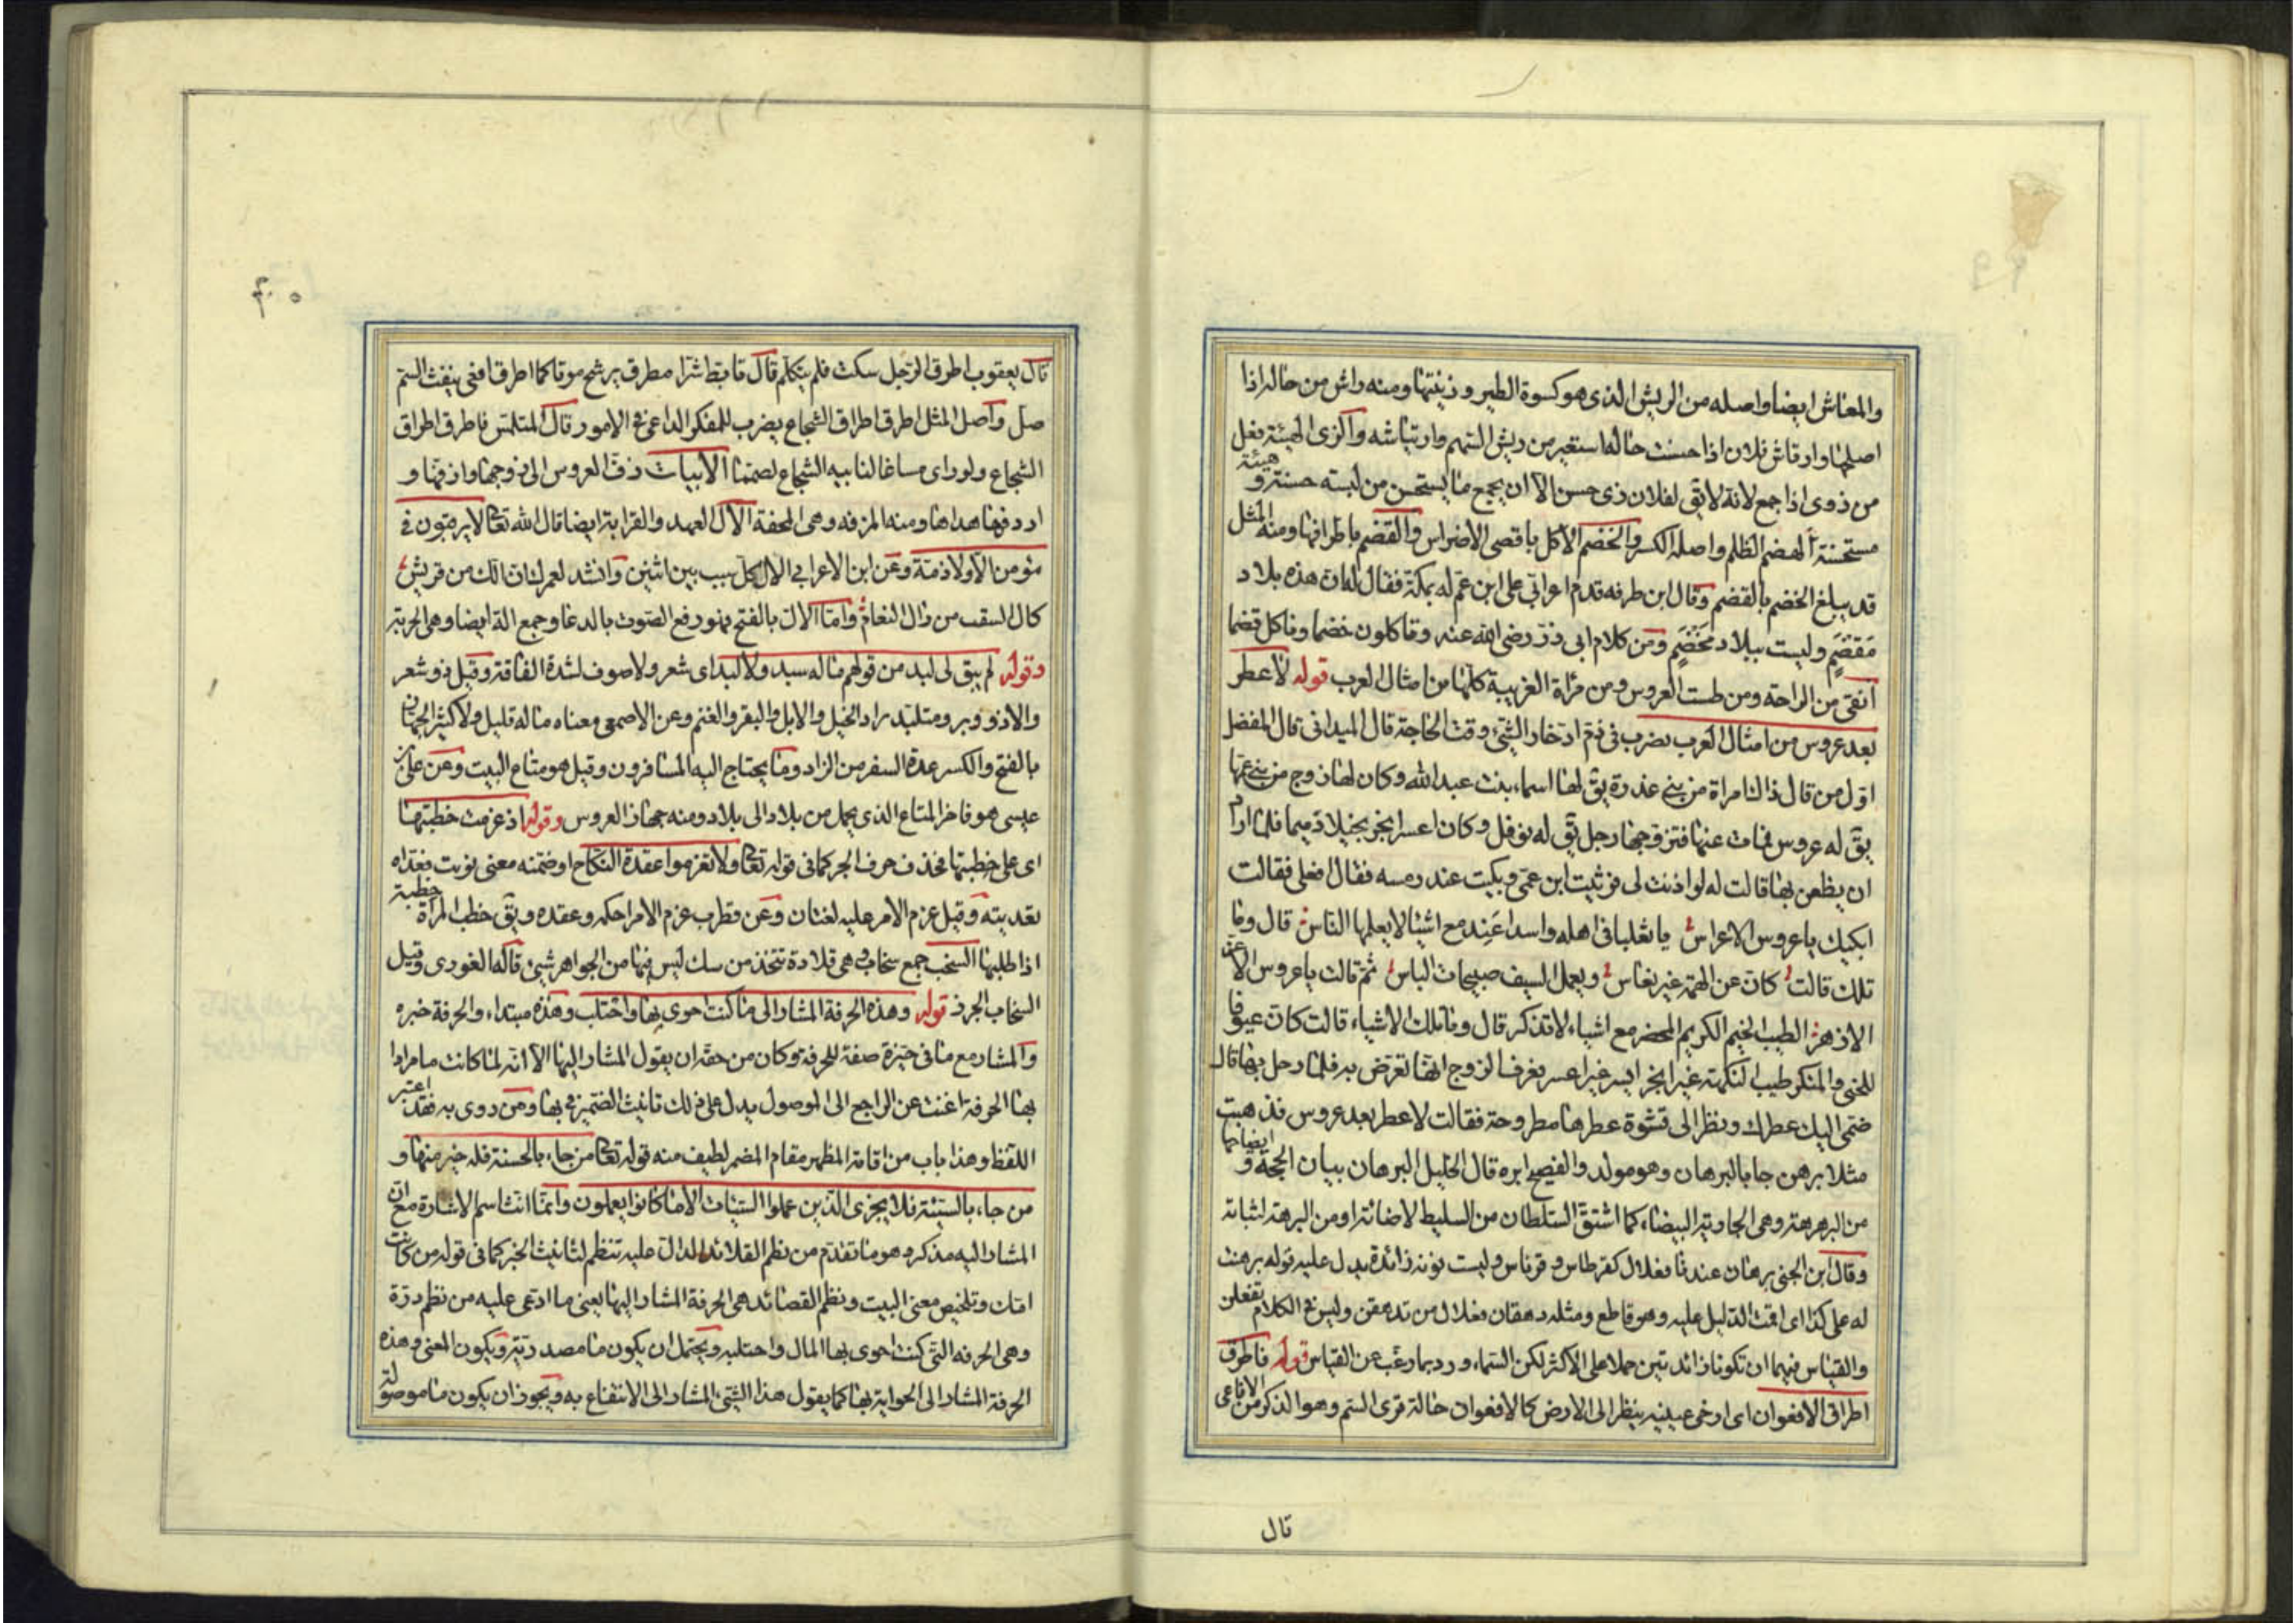 والمعاش ايضا واصله من الريش الذى هو كسوة الطير وزينتها ومنه راش من حاله اذا
اصلحها وارتاش فلان اذا حسنت حاله استعير من ريش السهم وارتياشه والزى الهيئة فعل
من زوى اذا جمع لانه لا يق لفلان زى حسن الا ان يجمع ما يستحسن من لبسه حسنة و هيئة
مستحسنة الهضم الظلم واصله الكسر والخضم الاكل باقصى الاضراس والقضم باطرافها ومنه المثل
قد يبلغ الخضم بالقضم وقال ابن طرفه قدم اعرابي على ابن عم له بمكة فقال له ان هذه بلاد
مَقْضَمٍ وليست ببلاد مَخْضَمٍ ومن كلام ابى ذر رضى الله عنه وتاكلون خضما وناكل قضما
انقى من الراحة ومن طست العروس ومن مرٔاة الغريبة كلها من امثال العرب قوله لا عطر
بعد عروس من امثال العرب يضرب فى ذم ادخار الشئ وقت الحاجة قال الميدانى قال المفضل
اول من قال ذالك امراة من بنى عذرة يق لها اسماء بنت عبدالله وكان لها زوج من بنى عمها
يق له عروس فمات عنها فتزوجها رجل يق له نوفل وكان اعسر ابخر بخيلا دميما فلما اراد
ان يظعن بها قالت له لو اذنت لى فرثيت ابن عمى وبكيت عند رمسه فقال افعلى فقالت
ابكيك يا عروس الاعراس يا ثعلبا فى اهله واسدا عند مع اشيا لا يعلمها الناس قال وما
تلك قالت كان عن الهمة غير نعاس ويعمل السيف صبيحات الباس ثم قالت يا عروس الاغر
الازهر الطيب الخيم الكريم المحضر مع اشياء لا تذكر قال وما تلك الاشياء قالت كان عيوفا
للخنى والمنكر طيب النكهة غير ابخر ايسر غير اعسر فعرف الزوج انها تعرض به فلما رحل بها قال
ضمى اليك عطرك ونظر الى قشوة عطرها مطروحة فقالت لا عطر بعد عروس فذهبت
مثلا برهن جا بالبرهان وهو مولد والفصيح ابره قال الخليل البرهان بيان الحجة و ايضاحها
من البرهرهة وهى الجارية البيضاء كما اشتق السلطان من السليط لاضائته او من البرهة لثباته
وقال ابن الجنى برهان عندنا فعلال كقرطاس وقرناس وليست نونه زائدة يدل عليه قوله برهنت
له على كذا اى اقمت الدليل عليه وهو قاطع ومثله دهقان فعلال من تدهقن وليس فى الكلام تفعلن
والقياس فيهما ان تكونا زائدتين حملا على الاكثر لكن السماع ورد بما رغب عن القياس قوله فاطرق
اطراق الافعوان اى ارخى عينيه ينظر الى الارض كالافعوان حالة قرى السم وهو الذكر من الافاعى
قال
قال يعقوب اطرق الرجل سكت فلم يتكلم قال تابط شرا مطرق يرشح موتا كما اطرق افعى ينفث السم
صل واصل المثل اطرق اطراق الشجاع يضرب للمفكر الداعى فى الامور قال المتلمس فاطرق اطراق
الشجاع ولو راى مساغا لنابيه الشجاع لصمما الابيات زف العروس الى زوجها وازفها و
ازدفها هداها ومنه المزفه وهى المحفة الال العهد والقرابة ايضا قال الله تعالى لا يرقبون فى
مؤمن الا ولا ذمة وعن ابن الاعرابي الال كل سبب بين اثنين وانشد لعمرك ان الك من قريش
كال السقب من رال النعام واما الال بالفتح فهو رفع الصوت بالدعا وجمع الة ايضا وهى الحربة
وقوله لم يبق لى لبد من قولهم ماله سبد ولا لبد اى شعر ولا صوف لشدة الفاقة وقيل ذو شعر
والا ذو وبر ومتلبد راد الخيل والابل والبقر والغنم وعن الاصمعى معناه ماله قليل ولا كثير الجهاز
بالفتح والكسر عدة السفر من الزاد وما يحتاج اليه المسافرون وقيل هو متاع البيت وعن على بن
عيسى هو فاخر المتاع الذى يحمل من بلاد الى بلاد ومنه جهاز العروس وقوله اذ عزمت خطبتها
اى على خطبتها فحذف حرف الجر كما فى قوله تعالى ولا تعزموا عقدة النكاح او ضمنه معنى نويت فعداه
تعديته وقيل عزم الامر عليه لغتان وعن قطرب عزم الامر احكمه وعقده ويق خطب المراة خطبة
اذا طلبها السخب جمع سخاب وهى قلادة تتخذ من سك ليس فيها من الجواهر شئ قاله الغورى وقيل
السخاب الجرز قوله وهذه الحرفة المشار الى ما كنت احوى بها واختلب وهذه مبتداء والحرفة خبره
والمشار مع ما فى حيزه صفة للحرفة وكان من حقه ان يقول المشار اليها الا انه لما كانت ما مرادا
بها الحرفة اغنت عن الراجع الى الموصول يدل على ذلك تانيث الضمير فى بها ومن روى به فقد اعتبر
اللفظ وهذا باب من اقامة المظهر مقام المضمر لطيف منه قوله تعالى من جاء بالحسنة فله خير منها و
من جاء بالسيئة فلا يجزى الذين عملوا السيئات الا ما كانوا يعملون وانما انث اسم الاشارة مع ان
المشار اليه مذكر وهو ما تقدم من نظم القلائد الدال عليه تنظم لتانيث الخبر كما فى قوله من كانت
امك وتلخيص معنى البيت ونظم القصائد هى الحرفة المشار اليها يعنى ما ادعى عليه من نظم درة
وهى الحرفه التى كنت احوى بها المال واحتلبه ويحتمل ان يكون ما مصدرية ويكون المعنى وهذه
الحرفة المشار الى الحواية بها كما يقول هذا الشئ المشار الى الانتفاع به ويجوز ان يكون ما موصولة